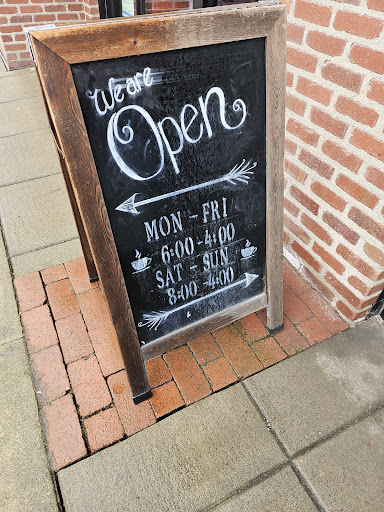 We are
Open
MON - FRI
6:00 - 4:00
SAT - SUN
8:00 - 4:00